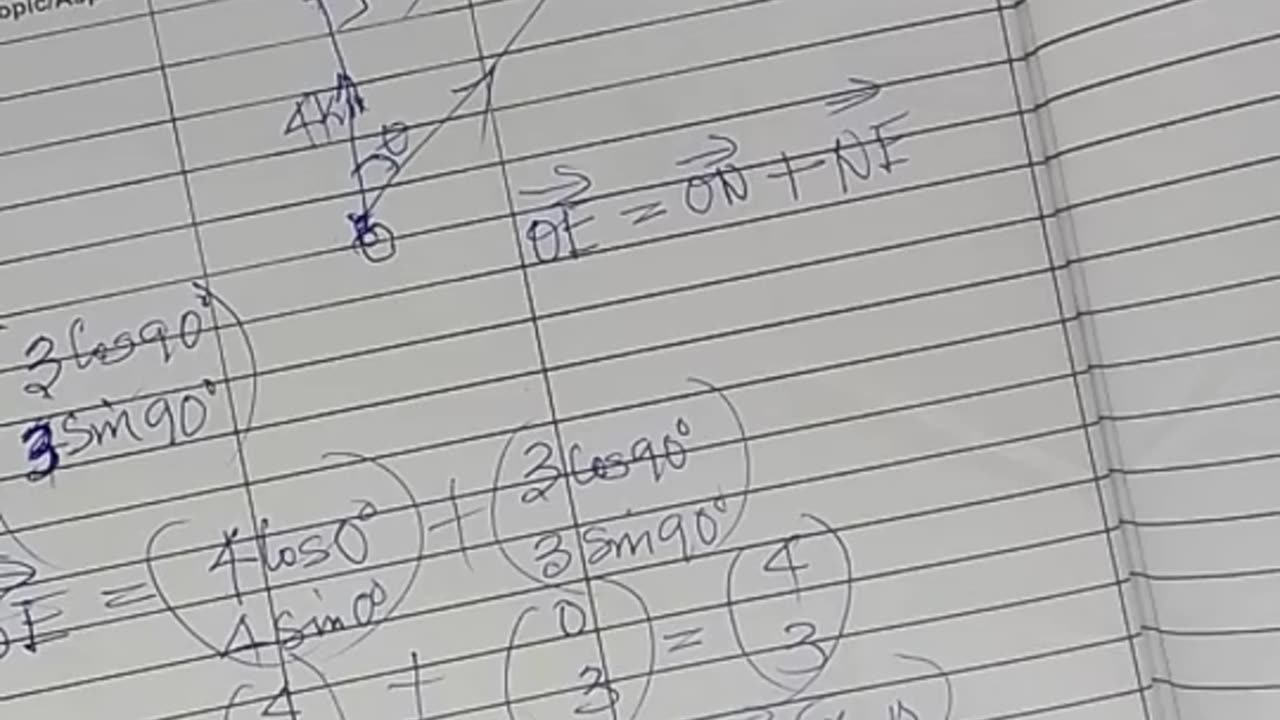 4K
θ
O
OE = ON + NE
3Cos90°
3Sin90°
OE = (4Cos0° 4Sin0°) + (3Cos90° 3Sin90°)
(4 + (0 3) = (4 3)